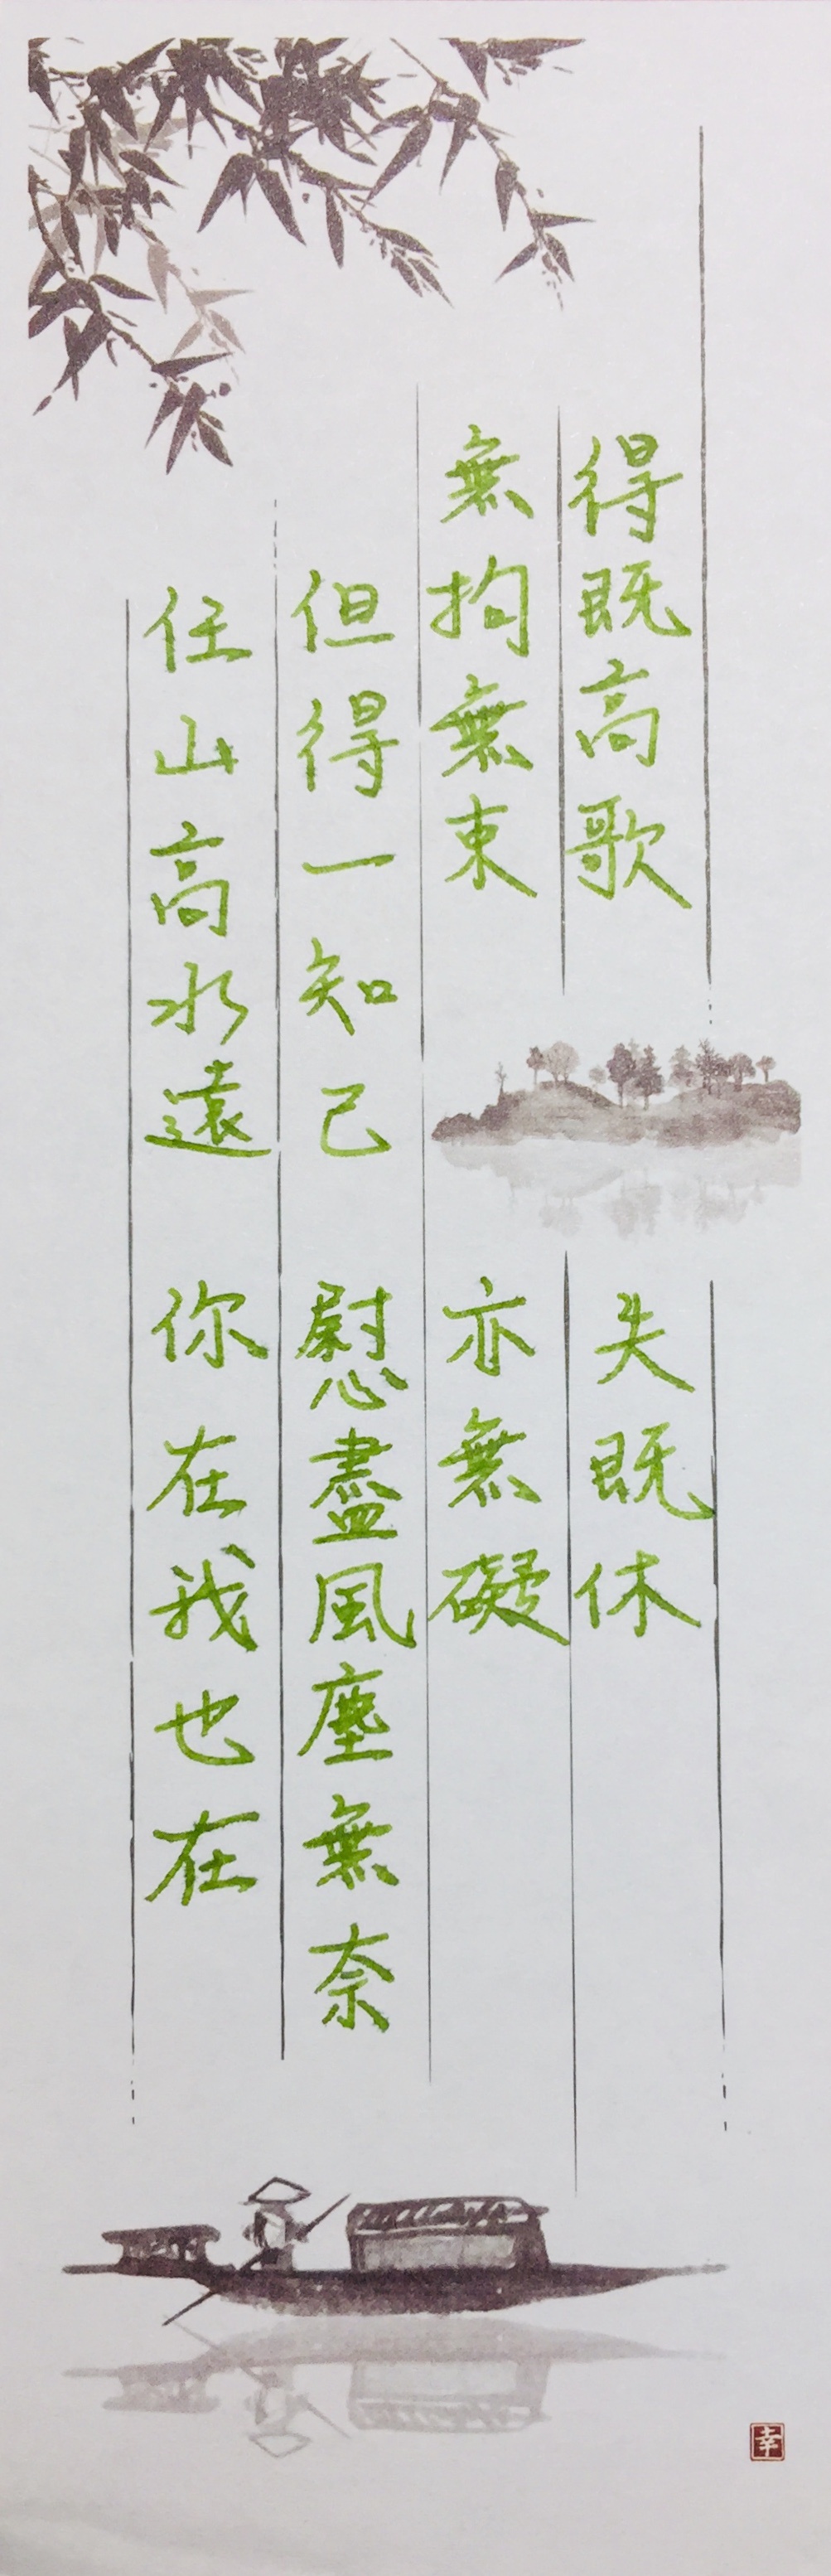 得既高歌 失既休
無拘無束 亦無礙
但得一知己 慰盡風塵無奈
任山高水遠 你在我也在
幸